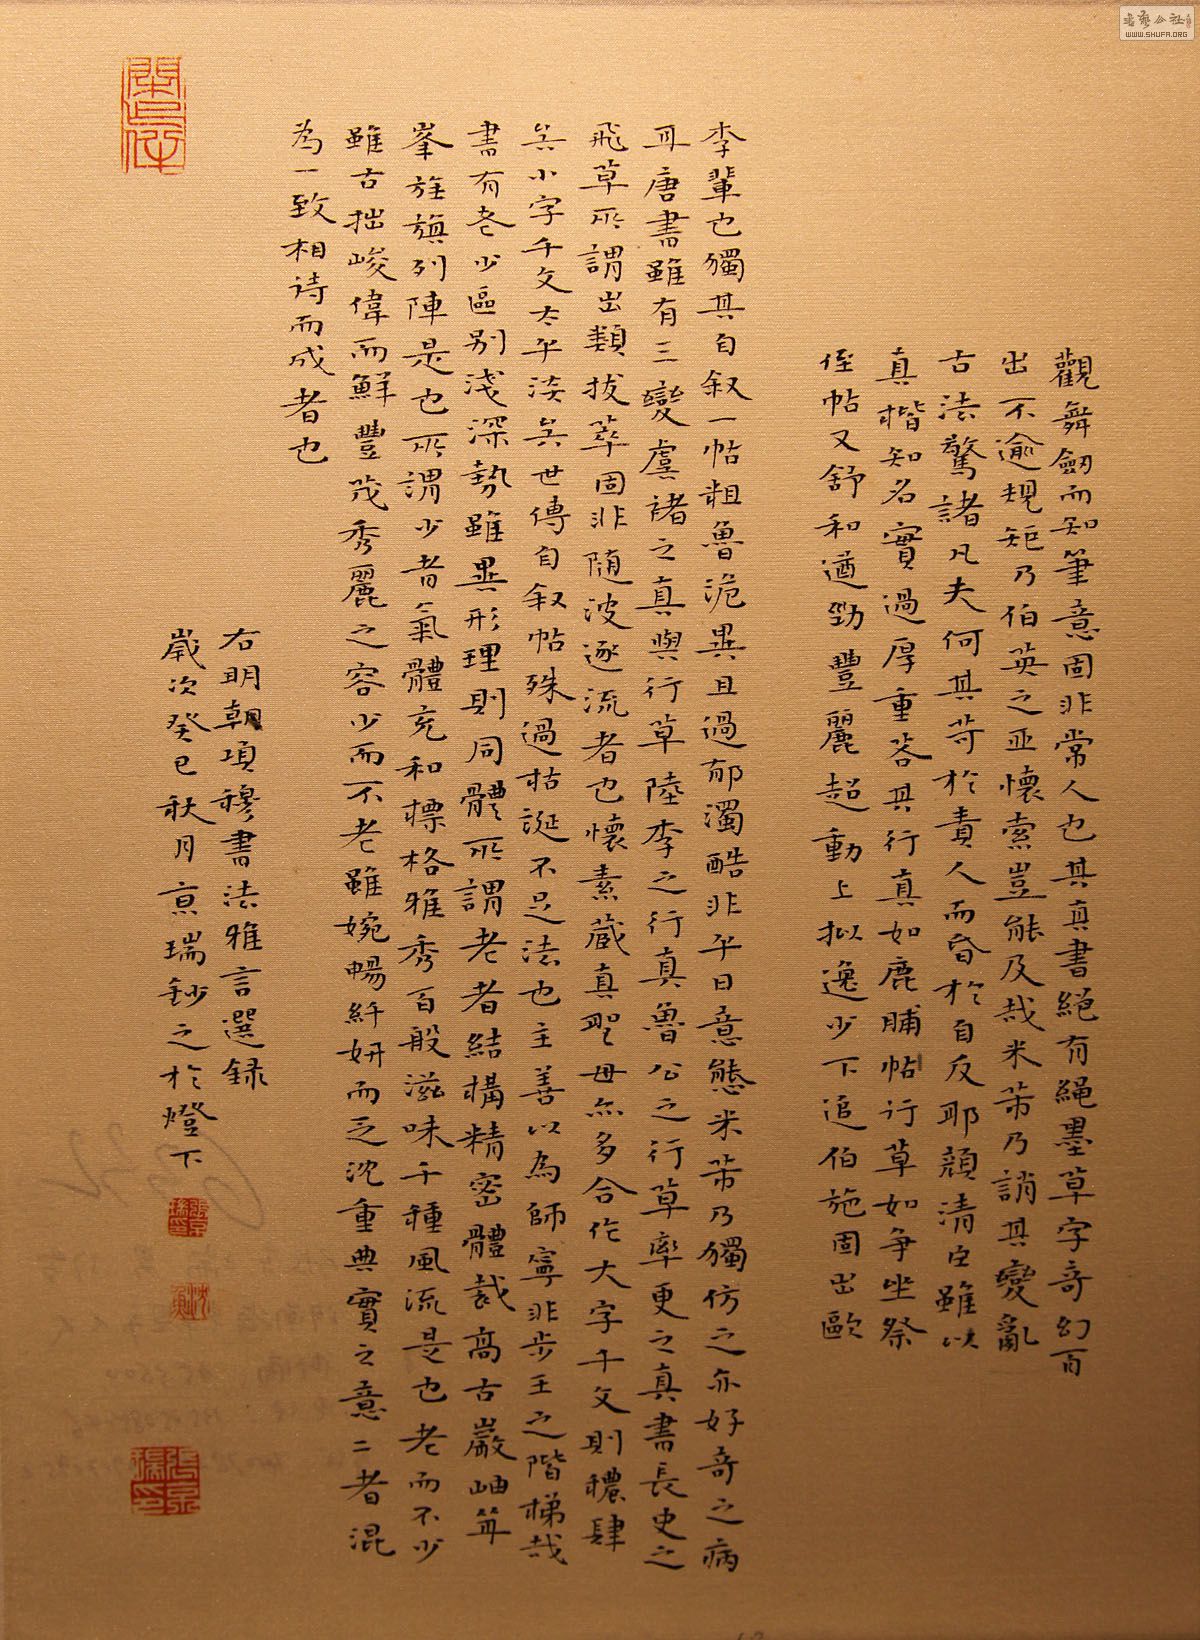 觀舞劒而知筆意固非常人也其真書絕有繩墨草字奇幻百
出不逾規矩乃伯英之亞懷素豈能及哉米芾乃誚其變亂
古法驚諸凡夫何其苛於責人而昏於自反耶顔清臣雖以
真楷知名實過厚重若其行真如鹿脯帖行草如爭坐祭
侄帖又舒和遒勁豐麗超動上拟逸少下追伯施固出歐
李輩也獨其自叙一帖粗魯詭異且過郁濁酷非平日意態米芾乃獨仿之亦好奇之病
耳唐書雖有三變虞諸之真與行草陸李之行真魯公之行草率更之真書長史之
飛草所謂出類拔萃固非随波逐流者也懷素藏真聖母亦多合作大字千文則穠肆
矣小字千文太平淡矣世傳自叙帖殊過枯誕不足法也主善以為師寧非步王之階梯哉
書有老少區别淺深勢雖異形理則同體所謂老者結構精密體裁高古巖岫聳
峯旌旗列陣是也所謂少者氣體充和標格雅秀百般滋味千種風流是也老而不少
雖古拙峻偉而鮮豐茂秀麗之容少而不老雖婉暢纤妍而乏沈重典實之意二者混
為一致相待而成者也
右明朝項穆書法雅言選録
歲次癸巳秋月京瑞鈔之於燈下
書藝公社
WWW.SHUFA.ORG